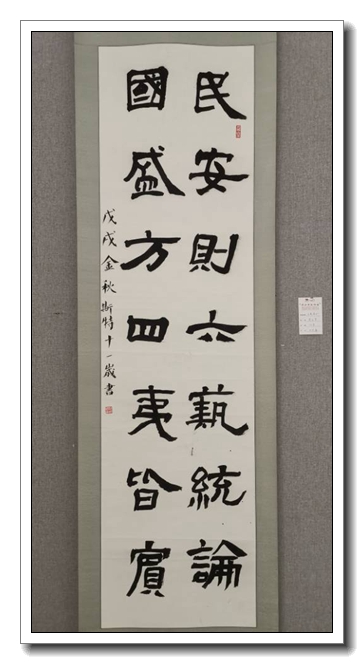 民安則六藝統論
國盛方四夷皆賓
戊戌金秋斯特十一歲書